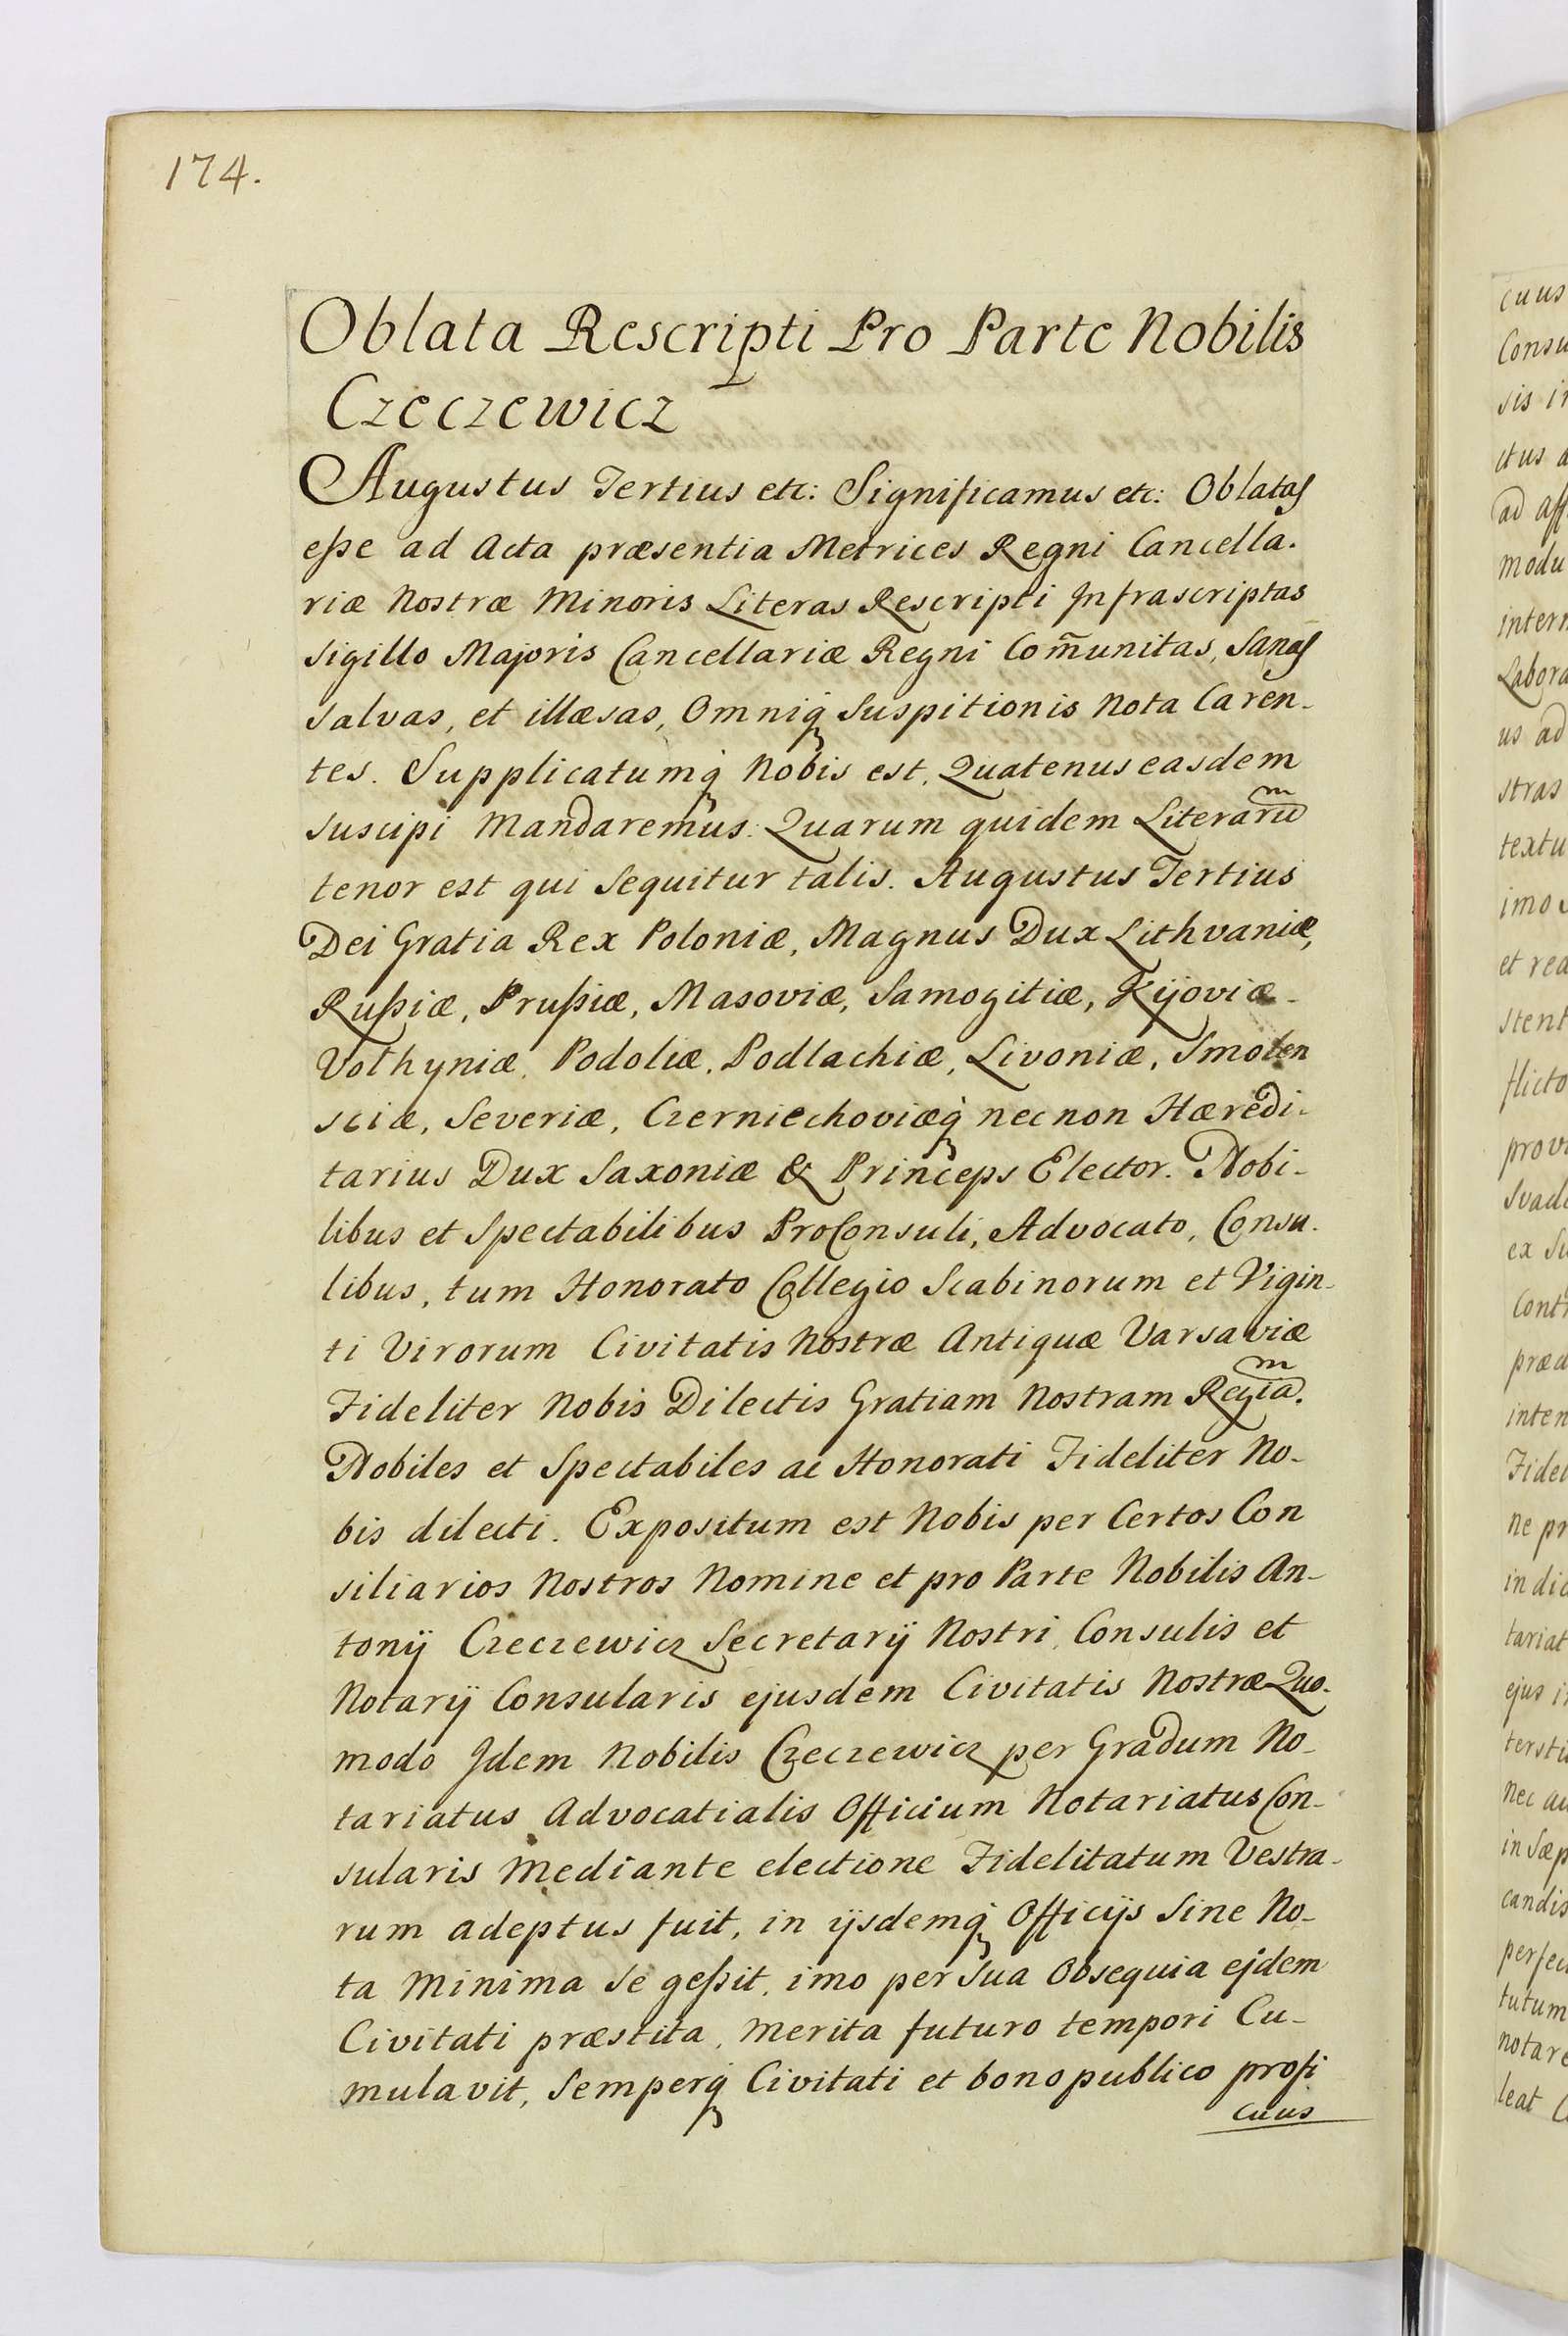 174.
Oblata Rescripti Pro Parte Nobilis
Czeczewicz
Augustus Tertius etc: Significamus etc: Oblatas
eße ad Acta præsentia Metrices Regni Cancella.
riæ Nostræ Minoris Literas Rescripti Infrascriptas
Sigillo Majoris Cancellariæ Regni Com̃unitas, Sanas
Salvas, et illæsas, Omniq̃ Suspitionis Nota Caren-
tes. Supplicatumq̃ Nobis est, Quatenus easdem
suscipi Mandaremus. Quarum quidem Literarum
tenor est qui Sequitur talis. Augustus Tertius
Dei Gratia Rex Poloniæ, Magnus Dux Lithvaniæ,
Rußiæ, Prußiæ, Masoviæ, Samogitiæ, Kijoviæ-
Volhyniæ, Podoliæ, Podlachiæ, Livoniæ, Smolen
sciæ, Severiæ, Czerniechoviæq̃ nec non Hæredi-
tarius Dux Saxoniæ & Princeps Elector. Nobi-
libus et Spectabilibus ProConsuli, Advocato, Consu-
libus, tum Honorato Collegio Scabinorum et Vigin-
ti Virorum Civitatis Nostræ Antiquæ Varsaviæ
Fideliter Nobis Dilectis Gratiam Nostram Regiam.
Nobiles et Spectabiles ac Honorati Fideliter No-
bis dilecti. Expositum est Nobis per Certos Con
siliarios Nostros Nomine et pro Parte Nobilis An-
tonij Czeczewicz Secretarij Nostri, Consulis et
Notarij Consularis ejusdem Civitatis Nostræ Quo-
modo Idem Nobilis Czeczewicz per Gradum No-
tariatus Advocatialis Officium Notariatus Con-
sularis Mediante electione Fidelitatum Vestra-
rum adeptus fuit, in ijsdemq̃ Officijs Sine No-
ta Minima Se geßit, imo per Sua Obsequia ejdem
Civitati præstita, Merita futuro tempori Cu-
mulavit, Semperq̃ Civitati et bono publico profi
cuus
cuus
Consu
sis in
ctus a
ad aff
modu
intern
Labora
us ad
stras
textu
imo
et rea
stent
flicto
prov
svad
ex Su
Cont
præd
inten
Fidel
ne pr
in dic
tariat
ejus i
tersti
nec au
in Sæp
candis
perfec
tutum
notare
leat